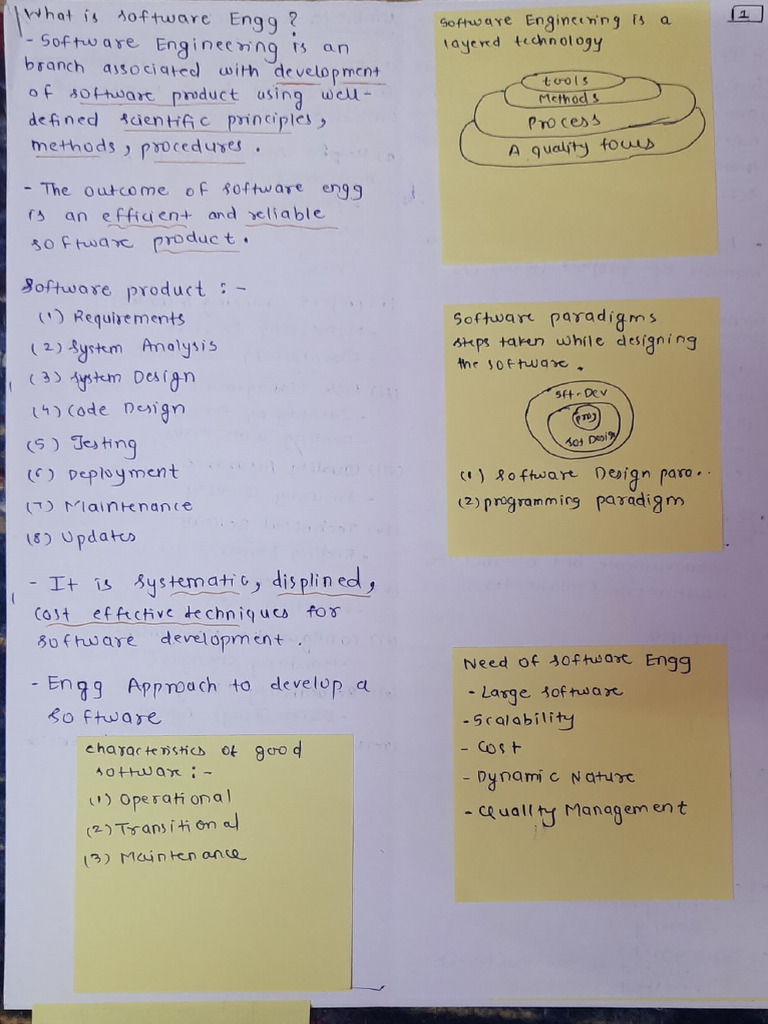 What is software Engg ?
- Software Engineering is an
branch associated with development
of software product using well-
defined scientific principles,
methods, procedures.
- The outcome of software engg
is an efficient and reliable
software product.
Software product : -
(1) Requirements
(2) System Analysis
(3) System Design
(4) Code Design
(5) Testing
(6) Deployment
(7) Maintenance
(8) Updates
- It is systematic, displined,
cost effective techniques for
software development.
- Engg Approach to develop a
software
characteristics of good
software : -
(1) Operational
(2) Transitional
(3) Maintenance
1
Software Engineering is a
layered technology
tools
Methods
Process
A quality focus
Software paradigms
steps taken while designing
the software.
Sft-Dev
prog
Sof Design
(1) Software Design para..
(2) programming paradigm
Need of software Engg
- Large software
- Scalability
- Cost
- Dynamic Nature
- Quality Management